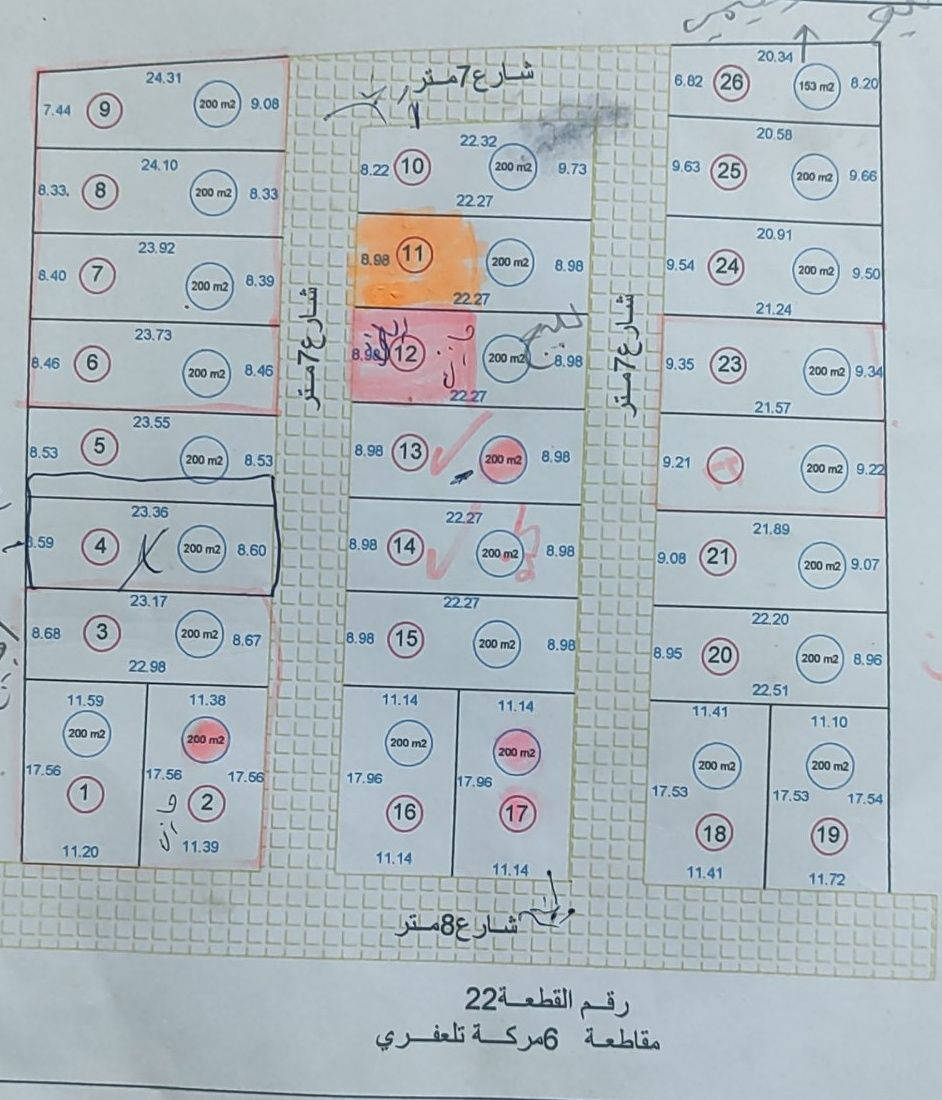 شارع 7متر
24.31
7.44 9 200 m2 9.08
24.10
8.33 8 200 m2 8.33
23.92
8.40 7 200 m2 8.39
23.73
8.46 6 200 m2 8.46
23.55
8.53 5 200 m2 8.53
23.36
8.59 4 200 m2 8.60
23.17
8.68 3 200 m2 8.67
22.98
11.59 11.38
200 m2 200 m2
17.56 17.56 17.56
1 2
11.20 11.39
شارع 7متر
22.32
8.22 10 200 m2 9.73
22.27
8.98 11 200 m2 8.98
22.27
8.98 12 200 m2 8.98
22.27
8.98 13 200 m2 8.98
22.27
8.98 14 200 m2 8.98
22.27
8.98 15 200 m2 8.98
11.14 11.14
200 m2 200 m2
17.96 17.96
16 17
11.14 11.14
شارع 7متر
20.34
6.82 26 153 m2 8.20
20.58
9.63 25 200 m2 9.66
20.91
9.54 24 200 m2 9.50
21.24
9.35 23 200 m2 9.34
21.57
9.21 200 m2 9.22
21.89
9.08 21 200 m2 9.07
22.20
8.95 20 200 m2 8.96
22.51
11.41 11.10
200 m2 200 m2
17.53 17.53 17.54
18 19
11.41 11.72
شارع 8متر
رقم القطعة 22
مقاطعة 6مركة تلعفري